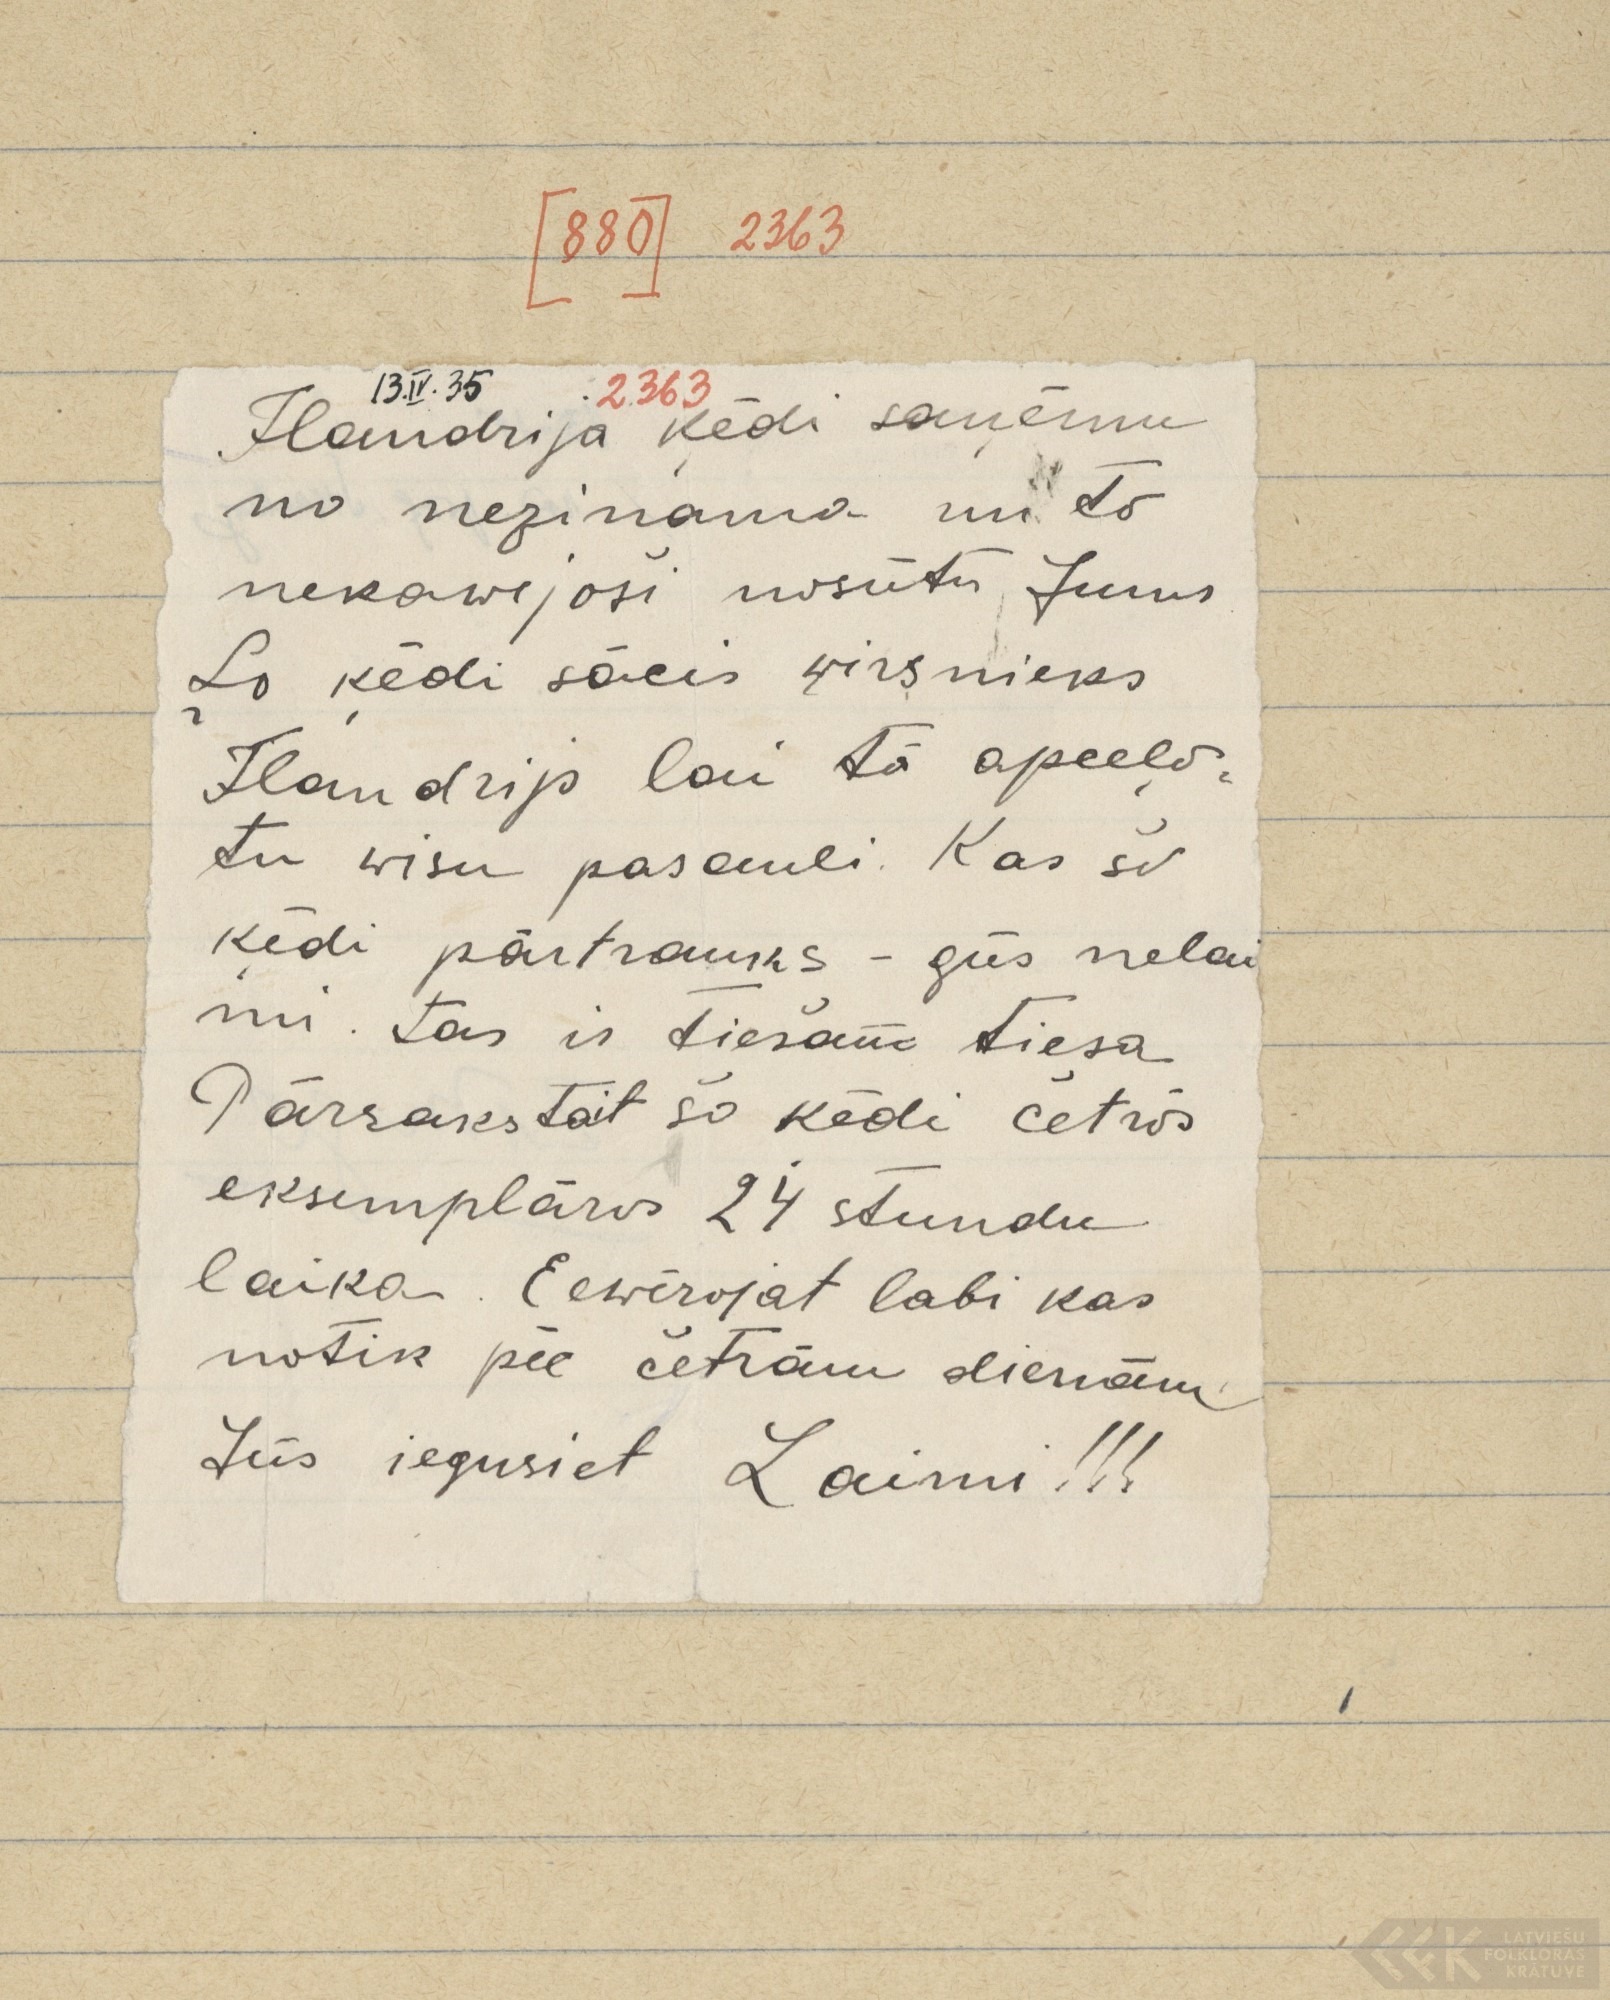 [880] 2363
13.IV.35 2363
Flandrija ķēdi saņēmu
no nezinama un to
nekawejoši nosūtu Jums
Šo ķēdi sācis wirsnieks
Flandrijā lai tā apceļo-
tu wisu pasauli. Kas šo
ķēdi pārtrauks - gūs nelai
mi. Tas ir tiešam tiesa
Pārrakstait šo ķēdi četrōs
eksemplāros 24 stundu
laika. Eewērojat labi kas
notik pēc četrām dienām
Jūs iegusiet Laimi!!!
LATVIEŠU
FOLKLORAS
KRĀTUVE